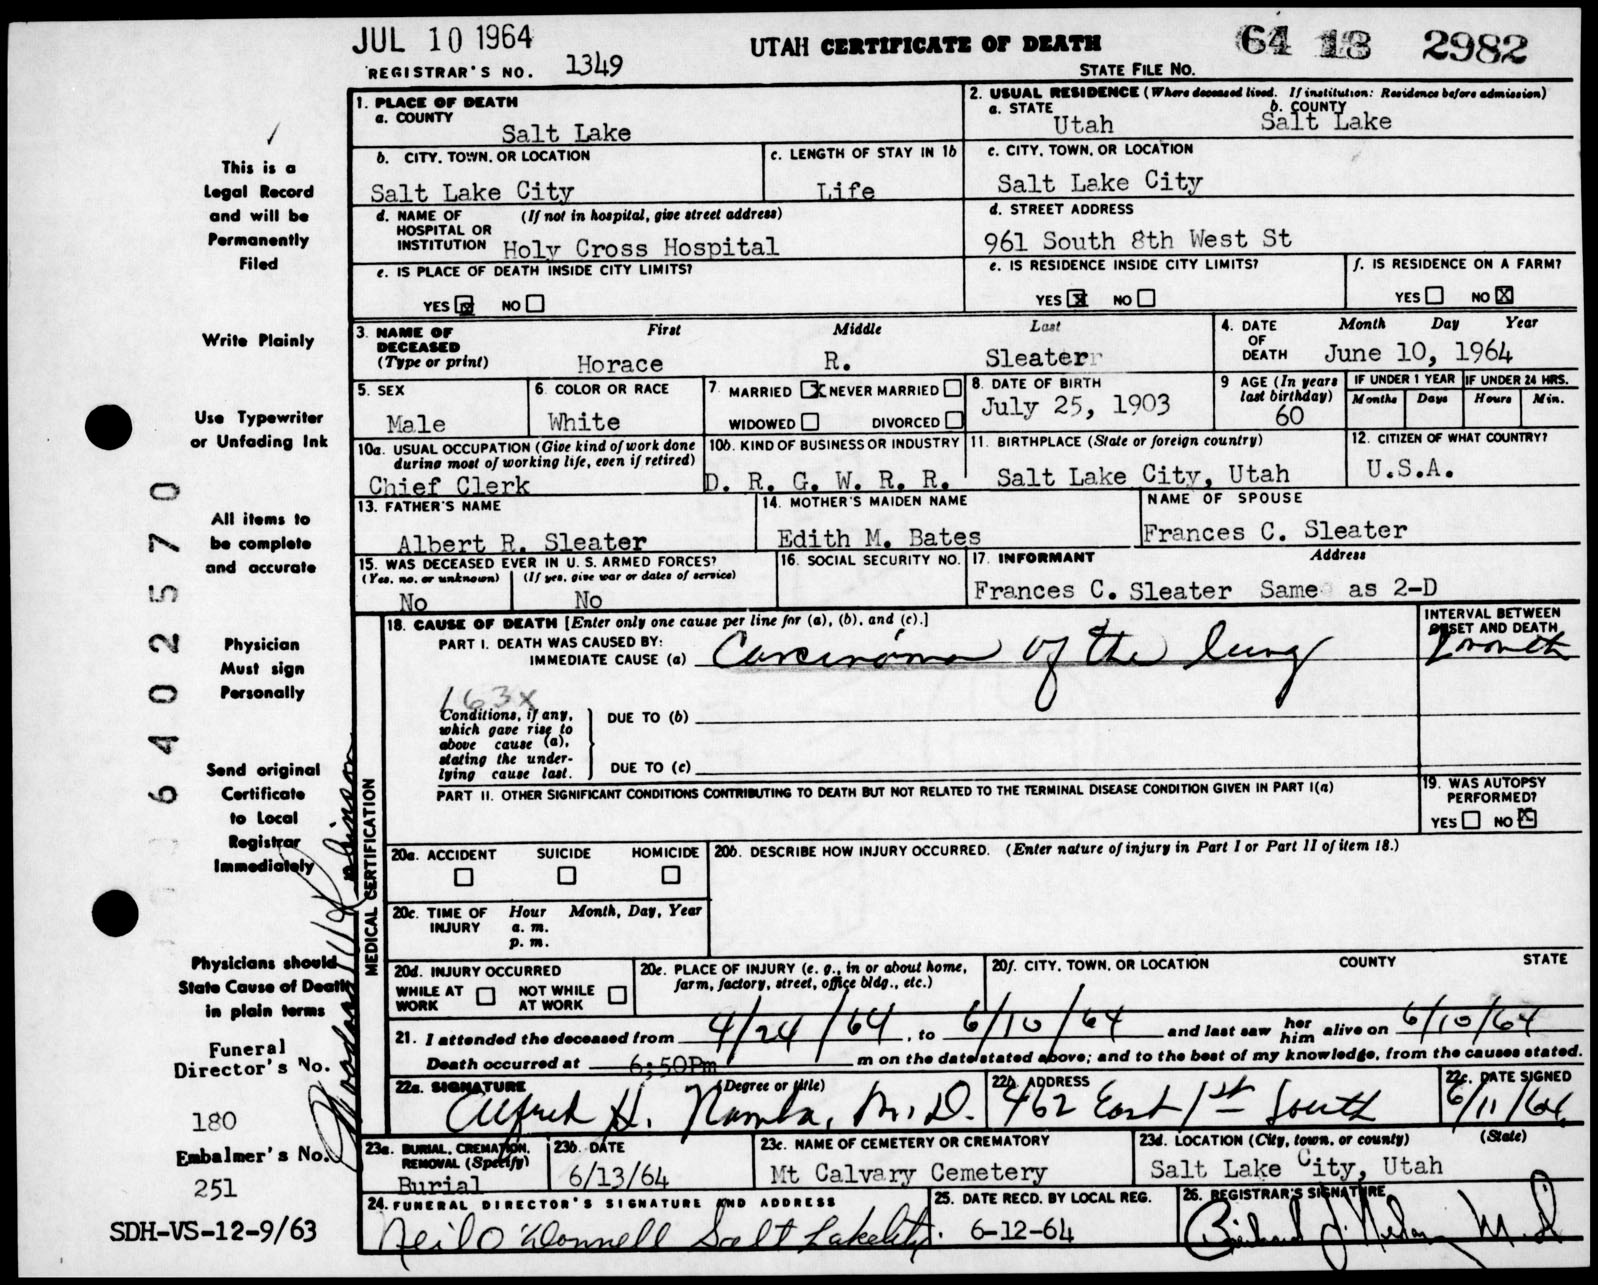 JUL 10 1964
UTAH CERTIFICATE OF DEATH
64 18 2982
REGISTRAR'S NO. 1349
STATE FILE NO.
This is a
Legal Record
and will be
Permanently
Filed
Write Plainly
Use Typewriter
or Unfading Ink
All items to
be complete
and accurate
Physician
Must sign
Personally
Send original
Certificate
to Local
Registrar
Immediately
Physicians should
State Cause of Death
in plain terms
Funeral
Director's No.
180
Embalmer's No.
251
SDH-VS-12-9/63
6402570
1. PLACE OF DEATH
a. COUNTY
Salt Lake
2. USUAL RESIDENCE (Where deceased lived. If institution: Residence before admission)
a. STATE Utah
b. COUNTY Salt Lake
b. CITY, TOWN, OR LOCATION
Salt Lake City
c. LENGTH OF STAY IN 1b
Life
c. CITY, TOWN, OR LOCATION
Salt Lake City
d. NAME OF HOSPITAL OR INSTITUTION (If not in hospital, give street address)
Holy Cross Hospital
d. STREET ADDRESS
961 South 8th West St
e. IS PLACE OF DEATH INSIDE CITY LIMITS?
YES X NO
e. IS RESIDENCE INSIDE CITY LIMITS?
YES X NO
f. IS RESIDENCE ON A FARM?
YES NO X
3. NAME OF DECEASED (Type or print)
First Middle Last
Horace R. Sleater
4. DATE OF DEATH
Month Day Year
June 10, 1964
5. SEX
Male
6. COLOR OR RACE
White
7. MARRIED X NEVER MARRIED
WIDOWED DIVORCED
8. DATE OF BIRTH
July 25, 1903
9 AGE (In years last birthday)
60
IF UNDER 1 YEAR
Months Days
IF UNDER 24 HRS.
Hours Min.
10a. USUAL OCCUPATION (Give kind of work done during most of working life, even if retired)
Chief Clerk
10b. KIND OF BUSINESS OR INDUSTRY
D. R. G. W. R. R.
11. BIRTHPLACE (State or foreign country)
Salt Lake City, Utah
12. CITIZEN OF WHAT COUNTRY?
U.S.A.
13. FATHER'S NAME
Albert R. Sleater
14. MOTHER'S MAIDEN NAME
Edith M. Bates
NAME OF SPOUSE
Frances C. Sleater
15. WAS DECEASED EVER IN U. S. ARMED FORCES?
(Yes, no, or unknown) (If yes, give war or dates of service)
No No
16. SOCIAL SECURITY NO.
17. INFORMANT Address
Frances C. Sleater Same as 2-D
MEDICAL CERTIFICATION
18. CAUSE OF DEATH [Enter only one cause per line for (a), (b), and (c).]
PART I. DEATH WAS CAUSED BY:
IMMEDIATE CAUSE (a) Carcinoma of the lung
INTERVAL BETWEEN
ONSET AND DEATH
163x
Conditions, if any,
which gave rise to
above cause (a),
stating the under-
lying cause last.
DUE TO (b)
DUE TO (c)
PART II. OTHER SIGNIFICANT CONDITIONS CONTRIBUTING TO DEATH BUT NOT RELATED TO THE TERMINAL DISEASE CONDITION GIVEN IN PART I(a)
19. WAS AUTOPSY PERFORMED?
YES NO X
20a. ACCIDENT SUICIDE HOMICIDE
20b. DESCRIBE HOW INJURY OCCURRED. (Enter nature of injury in Part I or Part II of item 18.)
20c. TIME OF INJURY
Hour Month, Day, Year
a. m.
p. m.
20d. INJURY OCCURRED
WHILE AT WORK NOT WHILE AT WORK
20e. PLACE OF INJURY (e. g., in or about home, farm, factory, street, office bldg., etc.)
20f. CITY, TOWN, OR LOCATION COUNTY STATE
21. I attended the deceased from 4/24/64, to 6/10/64 and last saw her him alive on 6/10/64
Death occurred at 6;50Pm m on the date stated above; and to the best of my knowledge, from the causes stated.
22a. SIGNATURE (Degree or title)
Alfred H. Namba, M.D.
22b. ADDRESS
462 East 1st South
22c. DATE SIGNED
6/11/64
23a. BURIAL, CREMATION, REMOVAL (Specify)
Burial
23b. DATE
6/13/64
23c. NAME OF CEMETERY OR CREMATORY
Mt Calvary Cemetery
23d. LOCATION (City, town, or county) (State)
Salt Lake City, Utah
24. FUNERAL DIRECTOR'S SIGNATURE AND ADDRESS
Neil O'Donnell Salt Lake City.
25. DATE RECD. BY LOCAL REG.
6-12-64
26. REGISTRAR'S SIGNATURE